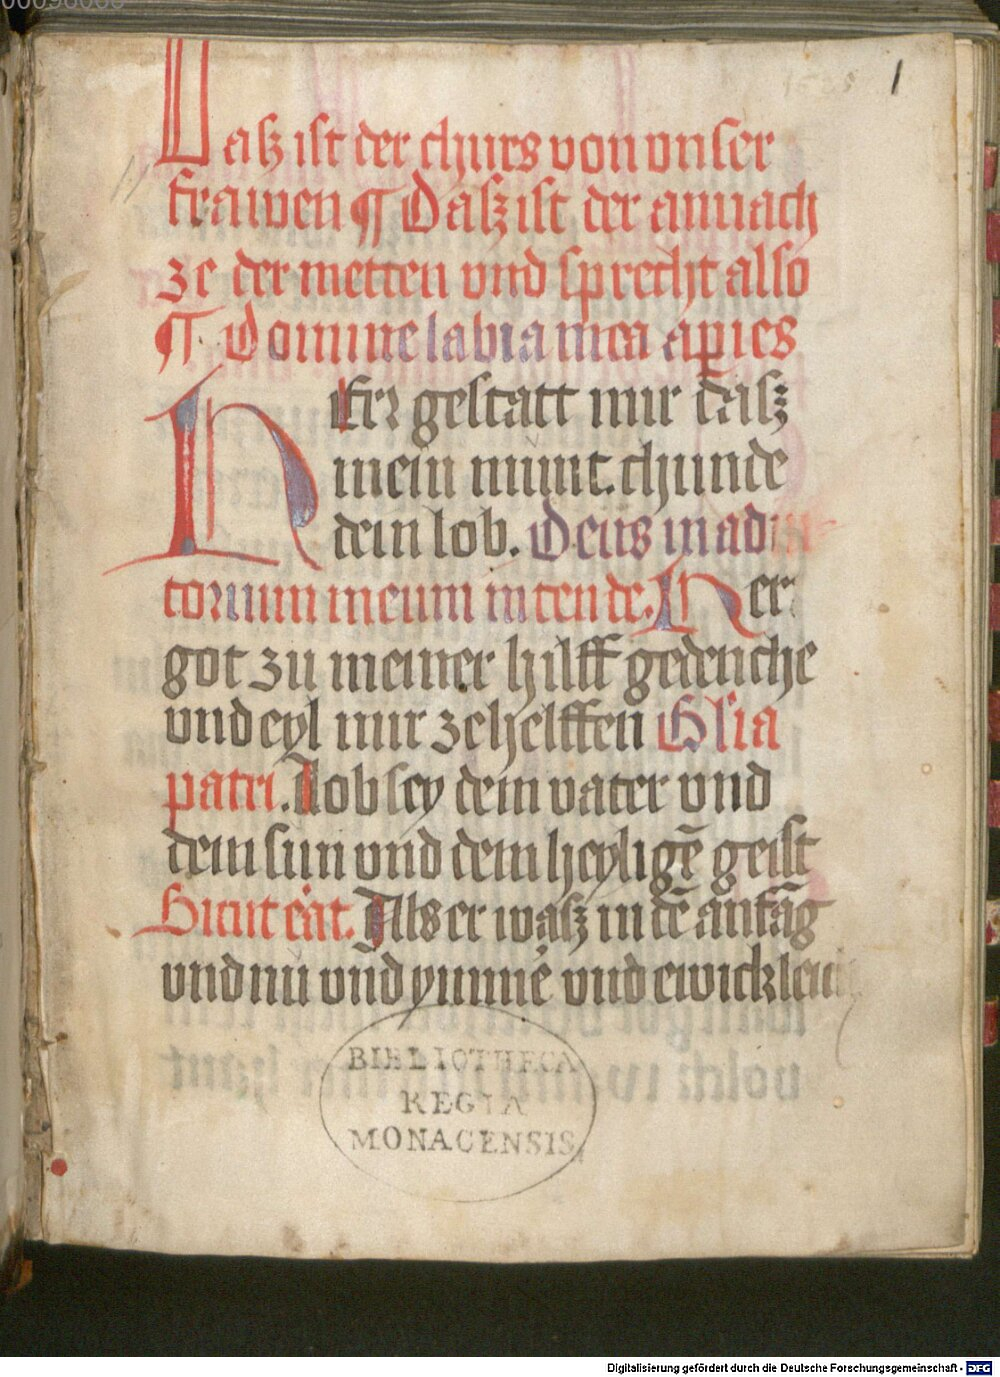 00096066
1
Dasz ist der churs von vnser
frawen ¶ Dasz ist der anuach
ze der metten vnd sprecht also
¶ Domine labia mea aperies
HErr gestatt mir dasz
mein munt chunde
dein lob. Deus in adiu
torium meum intende. Her
got zu meiner hilff gedenche
vnd eyl mir ze helffen Glia
patri. Lob sey dem vater vnd
dem sun vnd dem heyligē geist
Sicut erat. Als er wasz in dē anfāg
vnd nu vnd ymmē vnd ewicklich
BIBLIOTHECA
REGIA
MONACENSIS.
Digitalisierung gefördert durch die Deutsche Forschungsgemeinschaft - DFG